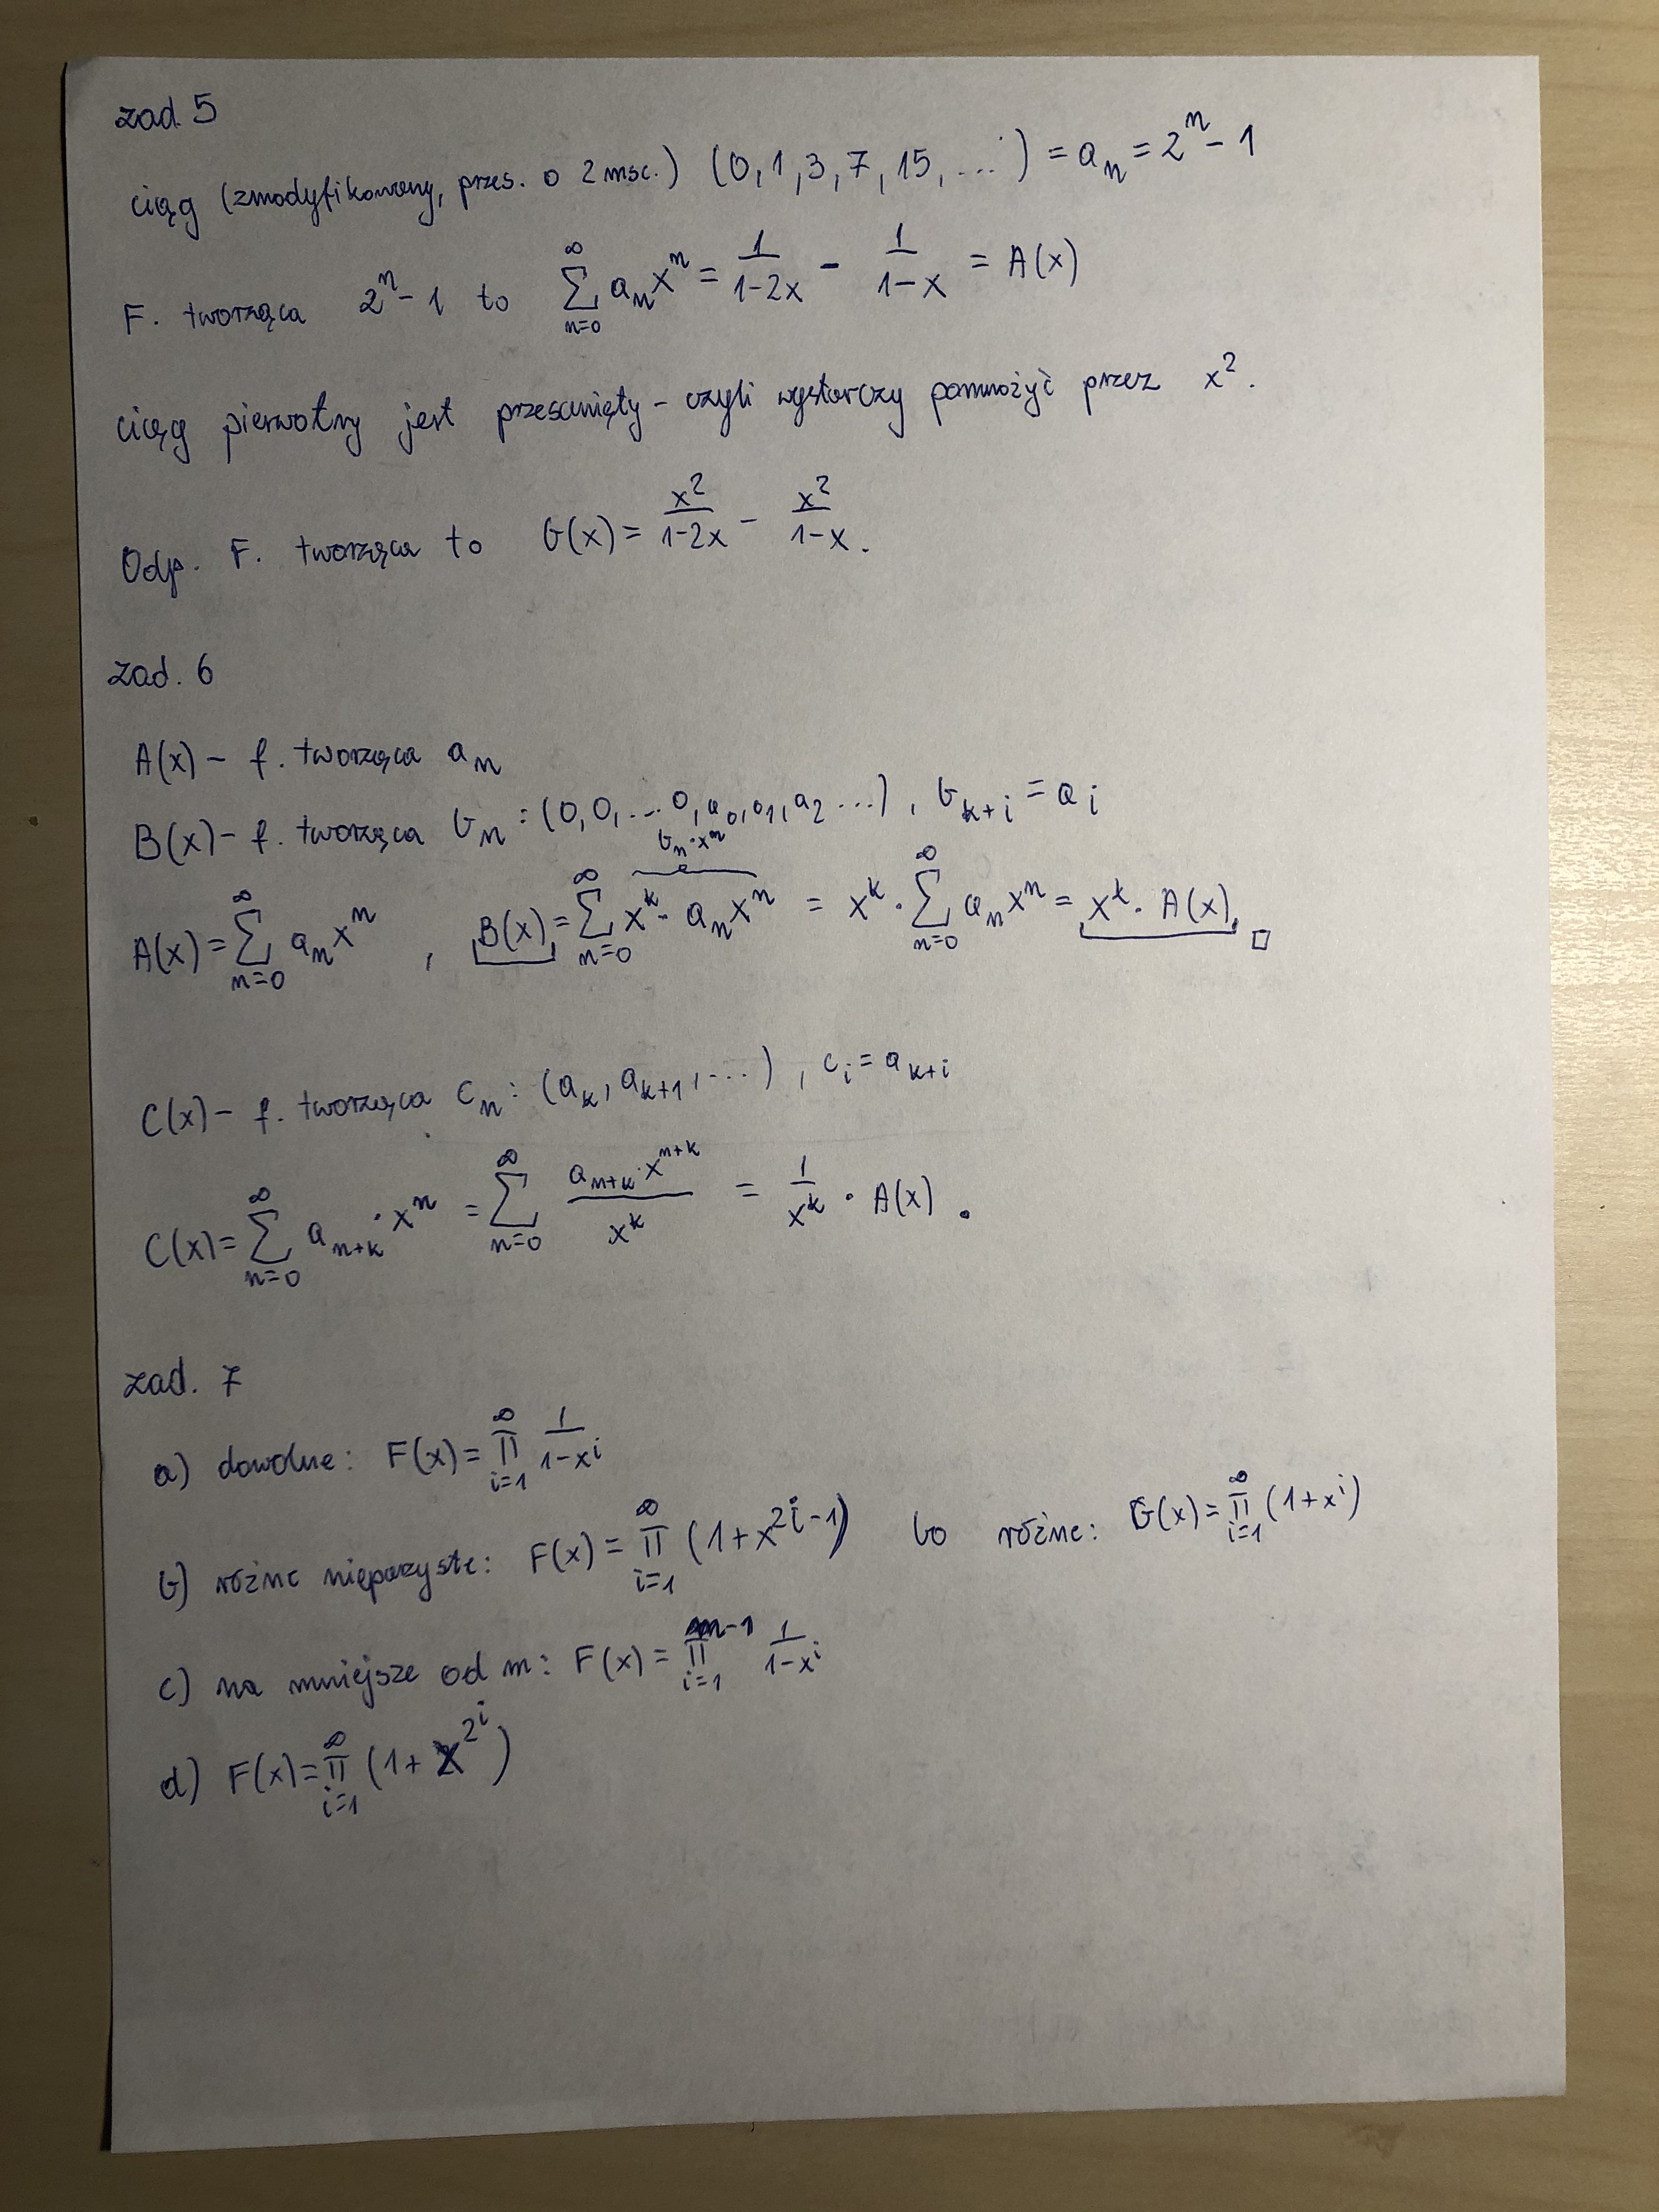 zad. 5
ciąg (zmodyfikowany, przes. o 2 msc.) (0, 1, 3, 7, 15, ...) = a_n = 2^n - 1
F. tworząca 2^n - 1 to \sum_{n=0}^{∞} a_n x^n = \frac{1}{1-2x} - \frac{1}{1-x} = A(x)
ciąg pierwotny jest przesunięty - czyli wystarczy pomnożyć przez x^2.
Odp. F. tworząca to G(x) = \frac{x^2}{1-2x} - \frac{x^2}{1-x}.
zad. 6
A(x) - f. tworząca a_n
B(x) - f. tworząca b_n : (0, 0, ... 0, a_0, a_1, a_2 ...), b_{k+i} = a_i
A(x) = \sum_{n=0}^{∞} a_n x^n , B(x) = \sum_{n=0}^{∞} \overbrace{x^k · a_n x^n}^{b_n · x^n} = x^k · \sum_{n=0}^{∞} a_n x^n = x^k · A(x). □
C(x) - f. tworząca c_n : (a_k, a_{k+1}, ...), c_i = a_{k+i}
C(x) = \sum_{n=0}^{∞} a_{n+k} · x^n = \sum_{n=0}^{∞} \frac{a_{n+k} · x^{n+k}}{x^k} = \frac{1}{x^k} · A(x).
zad. 7
a) dowolne: F(x) = \prod_{i=1}^{∞} \frac{1}{1-x^i}
b) różne nieparzyste: F(x) = \prod_{i=1}^{∞} (1+x^{2i-1}) bo różne: G(x) = \prod_{i=1}^{∞} (1+x^i)
c) na mniejsze od m: F(x) = \prod_{i=1}^{m-1} \frac{1}{1-x^i}
d) F(x) = \prod_{i=1}^{∞} (1+x^{2^i})